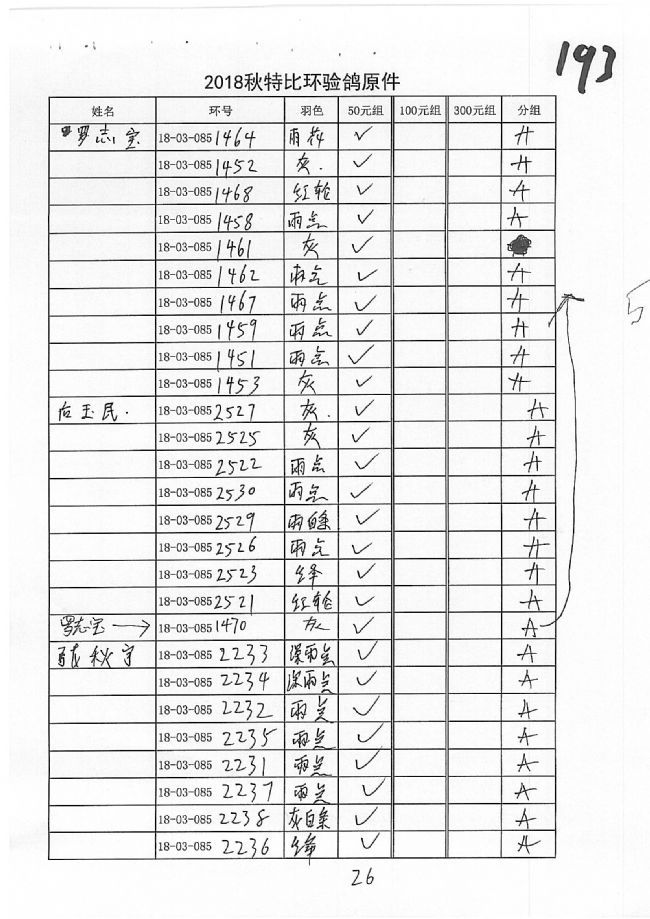 193
2018秋特比环验鸽原件
姓名 环号 羽色 50元组 100元组 300元组 分组
罗志宝 18-03-085 1464 雨花 ✓ A
18-03-085 1452 灰. ✓ A
18-03-085 1468 红轮 ✓ A
18-03-085 1458 雨点 ✓ A
18-03-085 1461 灰 ✓
18-03-085 1462 雨点 ✓ A
18-03-085 1467 雨点 ✓ A
18-03-085 1459 雨点 ✓ A
18-03-085 1451 雨点 ✓ A
18-03-085 1453 灰 ✓ A
后玉民. 18-03-085 2527 灰. ✓ A
18-03-085 2525 灰 ✓ A
18-03-085 2522 雨点 ✓ A
18-03-085 2530 雨点 ✓ A
18-03-085 2529 雨白条 ✓ A
18-03-085 2526 雨点 ✓ A
18-03-085 2523 绛 ✓ A
18-03-085 2521 红轮 ✓ A
罗志宝 → 18-03-085 1470 灰 ✓ A
秋宇 18-03-085 2233 深雨点 ✓ A
18-03-085 2234 深雨点 ✓ A
18-03-085 2232 雨点 ✓ A
18-03-085 2235 雨点 ✓ A
18-03-085 2231 雨点 ✓ A
18-03-085 2237 雨点 ✓ A
18-03-085 2238 灰白条 ✓ A
18-03-085 2236 绛 ✓ A
26